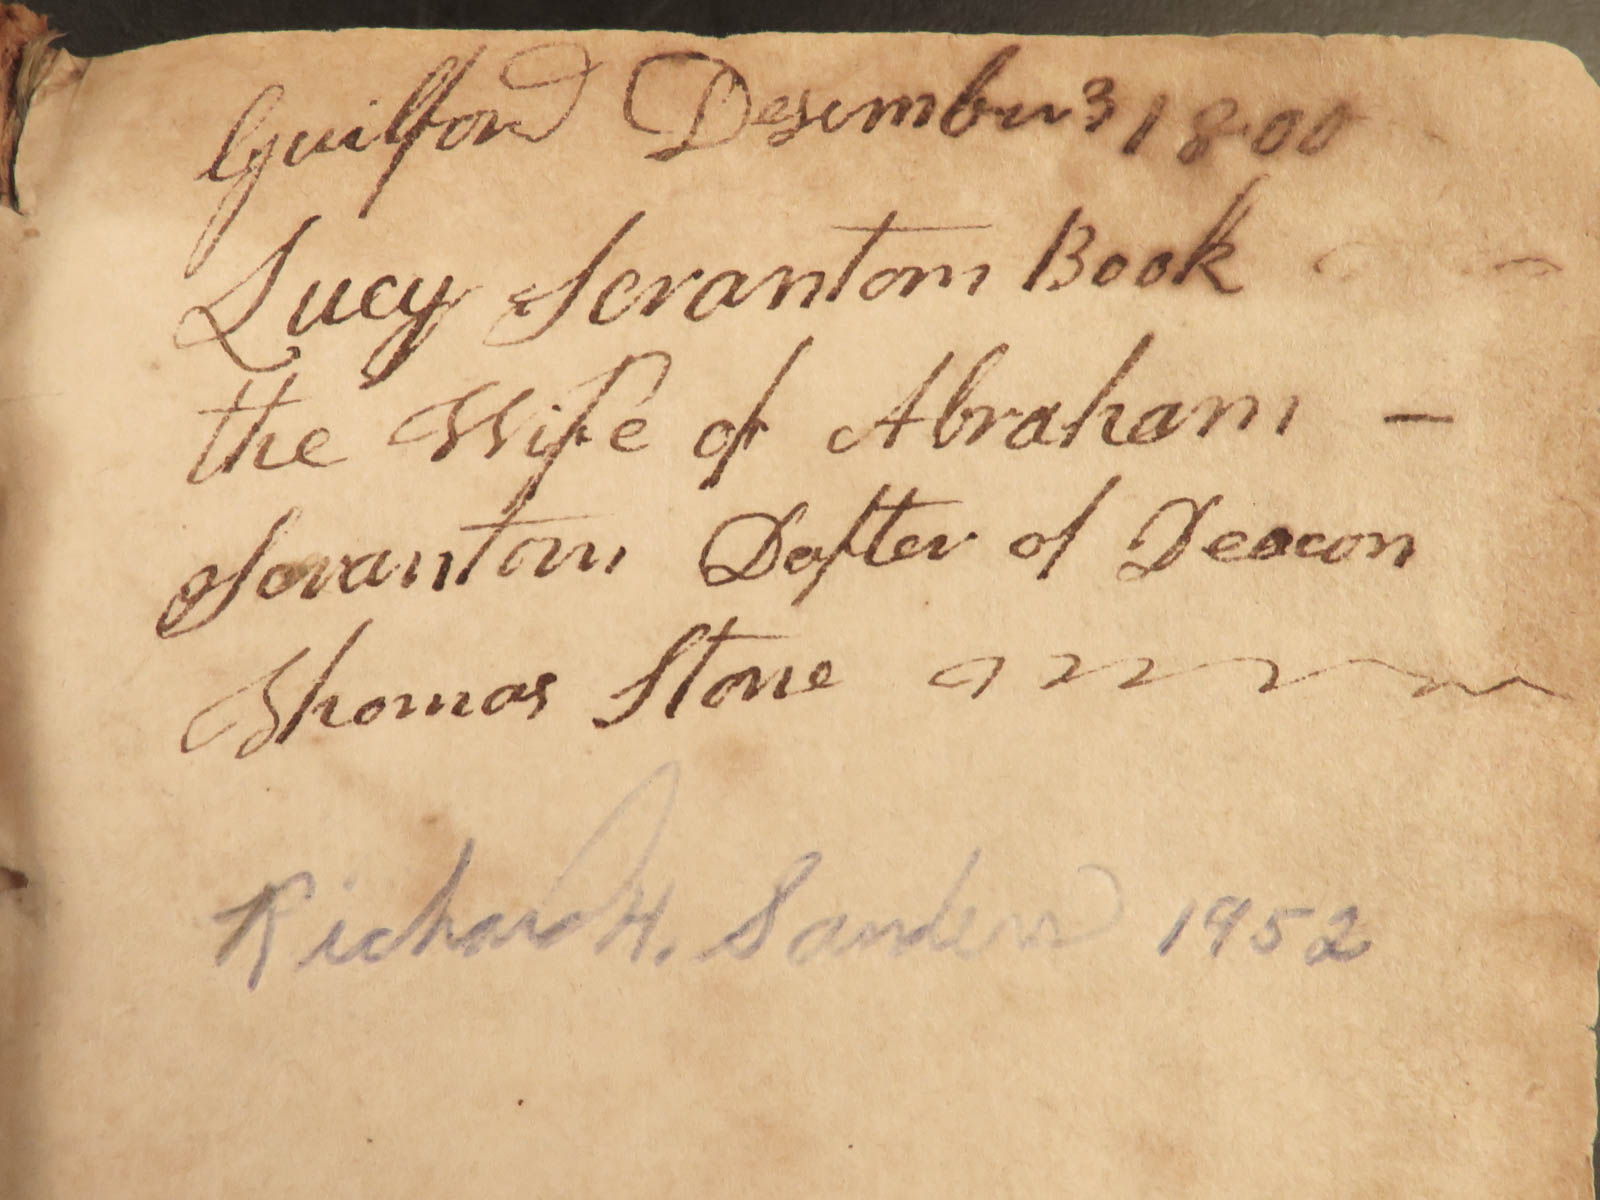 Guilford Desember 3 1800
Lucy Scrantom Book
the Wife of Abraham —
Scrantom Dafter of Deacon
Thomas Stone
Richard H. Sanders 1952